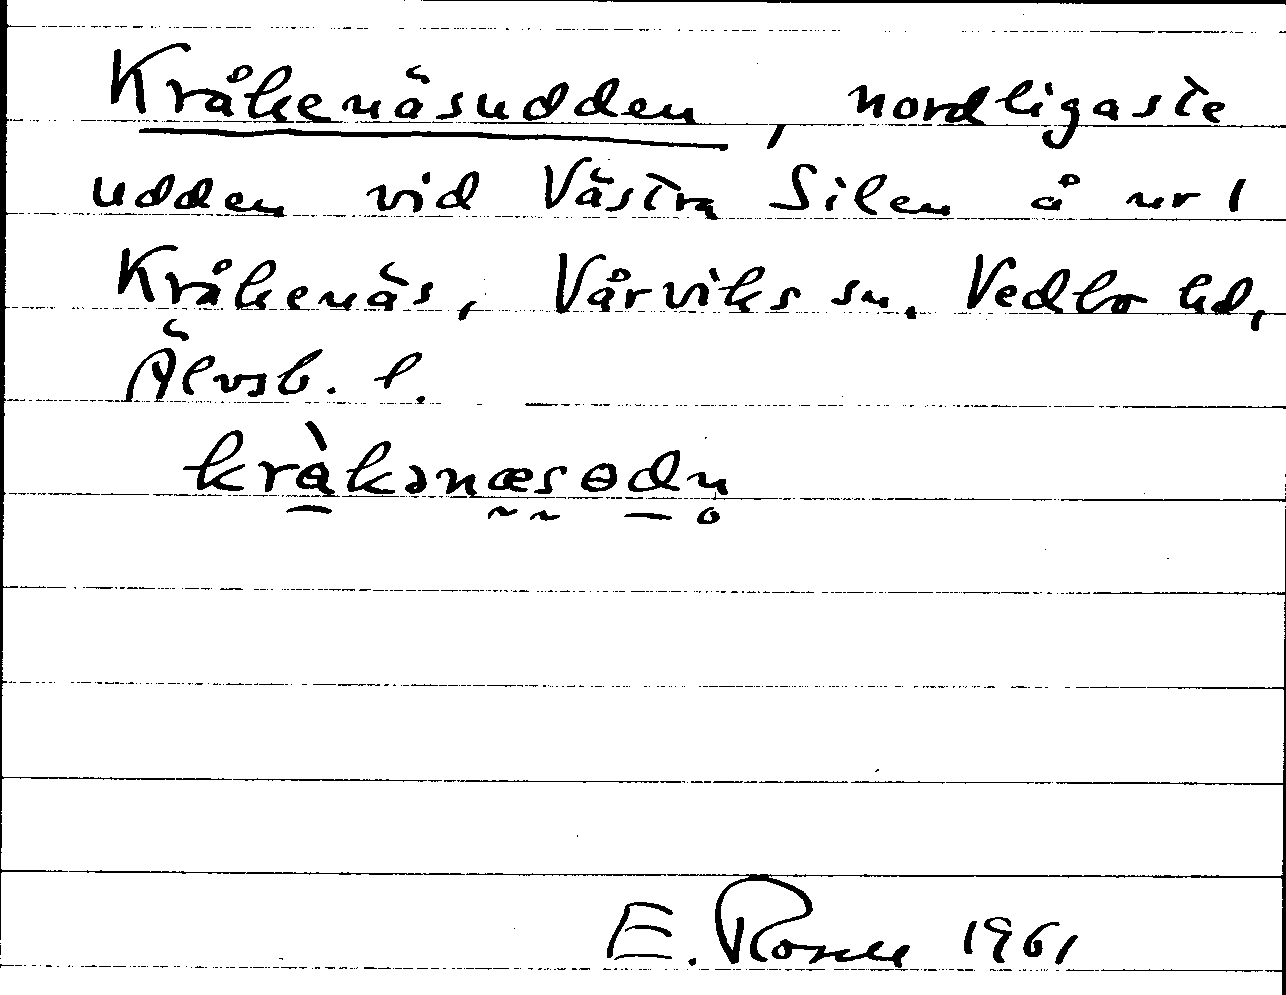 Kråkenäsudden, nordligaste
udden vid Västra Silen å nr 1
Kråkenäs, Vårviks sn. Vedbo hd,
Älvsb. l.
kràkənæsɵdn̥
E. Rosell 1961